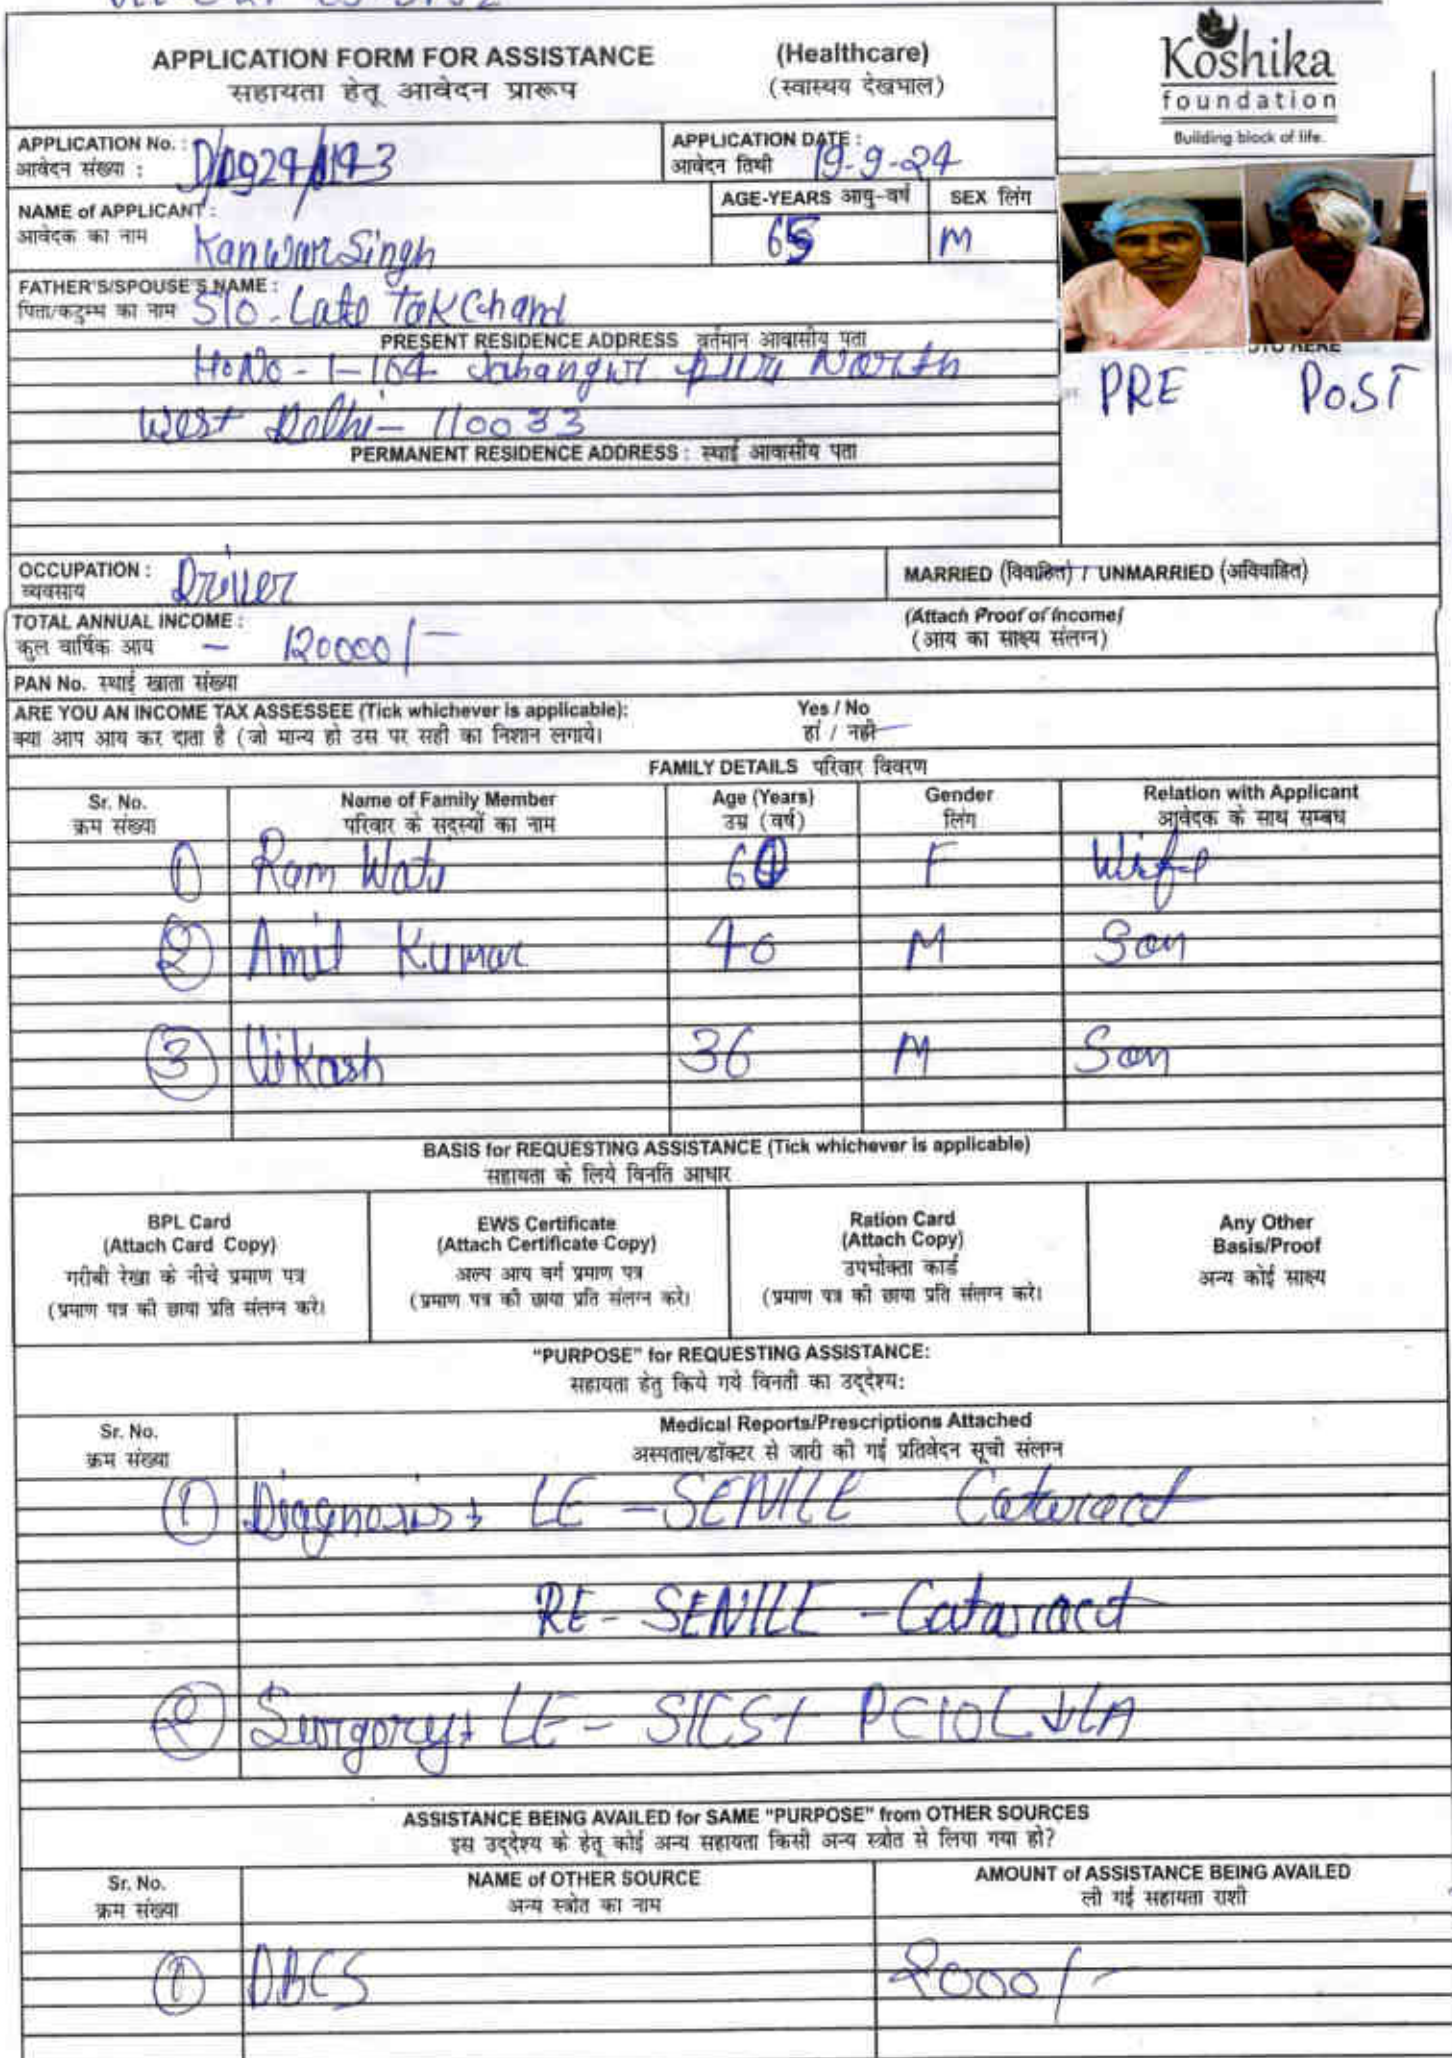 APPLICATION FORM FOR ASSISTANCE (Healthcare)
सहायता हेतू आवेदन प्रारूप (स्वास्थय देखभाल)
Koshika
foundation
Building block of life.
APPLICATION No. :
आवेदन संख्या : D/0924/0193
APPLICATION DATE :
आवेदन तिथी 19-9-24
NAME of APPLICANT :
आवेदक का नाम Kanwar Singh
AGE-YEARS आयु-वर्ष SEX लिंग
65 M
FATHER'S/SPOUSE'S NAME :
पिता/कटुम्भ का नाम S/O - Late Tek Chand
PRESENT RESIDENCE ADDRESS वर्तमान आवासीय पता
H.No - I-164 Jahangir puri North
West Delhi - 110033
PRE POST
PERMANENT RESIDENCE ADDRESS : स्थाई आवासीय पता
OCCUPATION :
व्यवसाय Driver
MARRIED (विवाहित) / UNMARRIED (अविवाहित)
TOTAL ANNUAL INCOME :
कुल वार्षिक आय - 120000/-
(Attach Proof of Income)
(आय का साक्ष्य संलग्न)
PAN No. स्थाई खाता संख्या
ARE YOU AN INCOME TAX ASSESSEE (Tick whichever is applicable): Yes / No
क्या आप आय कर दाता है (जो मान्य हो उस पर सही का निशान लगाये। हां / नही
FAMILY DETAILS परिवार विवरण
Sr. No. Name of Family Member Age (Years) Gender Relation with Applicant
क्रम संख्या परिवार के सदस्यों का नाम उम्र (वर्ष) लिंग आवेदक के साथ सम्बध
1 Ram Wati F Wife
2 Amit Kumar 40 M Son
3 Vikash 36 M Son
BASIS for REQUESTING ASSISTANCE (Tick whichever is applicable)
सहायता के लिये विनति आधार
BPL Card
(Attach Card Copy)
गरीबी रेखा के नीचे प्रमाण पत्र
(प्रमाण पत्र की छाया प्रति संलग्न करे।
EWS Certificate
(Attach Certificate Copy)
अल्प आय वर्ग प्रमाण पत्र
(प्रमाण पत्र की छाया प्रति संलग्न करे।
Ration Card
(Attach Copy)
उपभोक्ता कार्ड
(प्रमाण पत्र की छाया प्रति संलग्न करे।
Any Other
Basis/Proof
अन्य कोई साक्ष्य
"PURPOSE" for REQUESTING ASSISTANCE:
सहायता हेतु किये गये विनती का उद्देश्य:
Sr. No. Medical Reports/Prescriptions Attached
क्रम संख्या अस्पताल/डॉक्टर से जारी की गई प्रतिवेदन सूची संलग्न
1 Diagnosis LE - SENILE Cataract
RE - SENILE - Cataract
2 Surgery LE - SICS + PCIOL
ASSISTANCE BEING AVAILED for SAME "PURPOSE" from OTHER SOURCES
इस उद्देश्य के हेतू कोई अन्य सहायता किसी अन्य स्त्रोत से लिया गया हो?
Sr. No. NAME of OTHER SOURCE AMOUNT of ASSISTANCE BEING AVAILED
क्रम संख्या अन्य स्त्रोत का नाम ली गई सहायता राशी
1 DBCS 2000/-